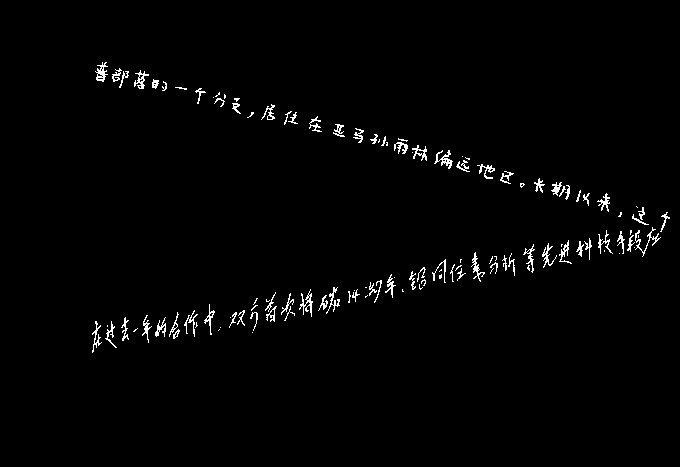 普部落的一个分支,居住在亚马孙雨林偏远地区。长期以来,这个
在过去一年的合作中,双方首次将碳14测年、铅同位素分析等先进科技手段应